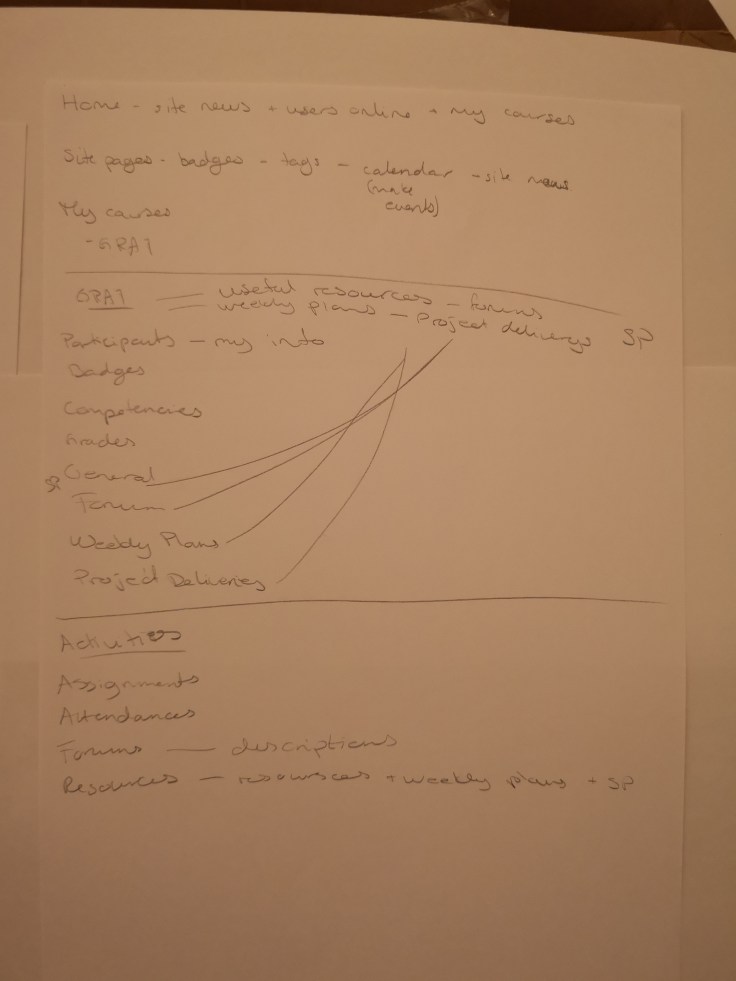 Home - site news + users online + my courses
Site pages - badges - tags - calendar - site news
(make
events)
My courses
- GPA1
GPA1 — useful resources - forums
— weekly plans - Project deliverys SP
Participants - my info
Badges
Competencies
Grades
SP General
Forum
Weekly Plans
Project Deliveries
Activities
Assignments
Attendances
Forums — descriptions
Resources - resources + weekly plans + SP